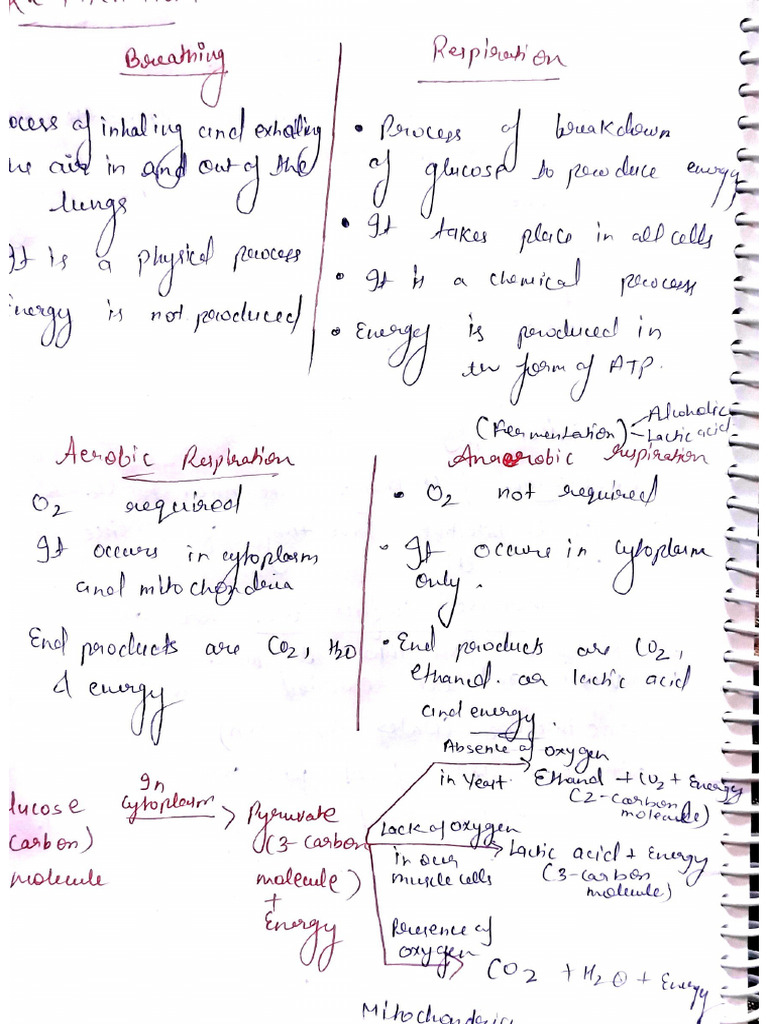 Breathing
ocess of inhaling and exhaling
he air in and out of the
lungs
It is a physical process
nergy is not produced
Respiration
• Process of breakdown
of glucose to produce energy
• It takes place in all cells
• It is a chemical process
• Energy is produced in
the form of ATP.
(Fermentation) Alcoholic
Lactic acid
Aerobic Respiration
O2 required
It occurs in cytoplasm
and mitochondria
End products are CO2, H2O
& energy
Anaerobic respiration
• O2 not required
• It occurs in cytoplasm
only.
• End products are CO2,
ethanol or lactic acid
and energy.
lucose
carbon)
molecule
In
cytoplasm
Pyruvate
(3-carbon
molecule)
+
Energy
Absence of oxygen
in Yeast
Ethanol + CO2 + Energy
(2-carbon
molecule)
Lack of oxygen
in our
muscle cells
Lactic acid + Energy
(3-carbon
molecule)
Presence of
oxygen
CO2 + H2O + Energy
Mitochondria